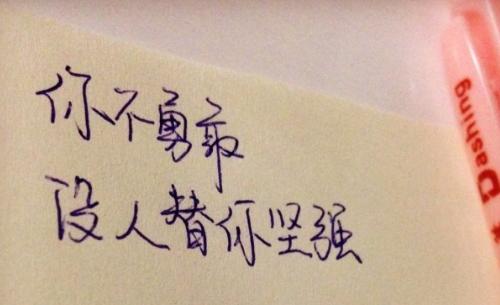 你不勇敢
没人替你坚强
Dashing